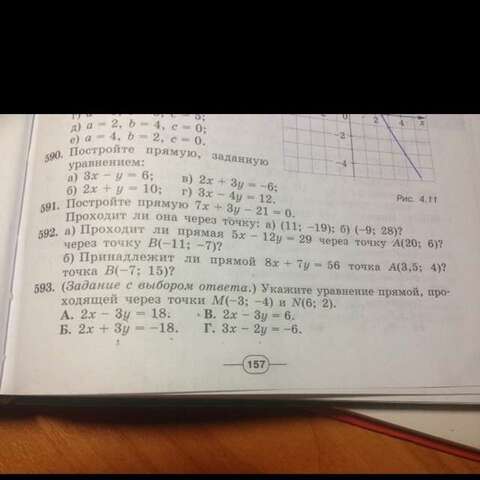 д) a = 2, b = 4, c = 0;
е) a = 4, b = 2, c = 0.
590. Постройте прямую, заданную
уравнением:
а) 3x − y = 6; в) 2x + 3y = −6;
б) 2x + y = 10; г) 3x − 4y = 12.
591. Постройте прямую 7x + 3y − 21 = 0.
Проходит ли она через точку: а) (11; −19); б) (−9; 28)?
592. а) Проходит ли прямая 5x − 12y = 29 через точку A(20; 6)?
через точку B(−11; −7)?
б) Принадлежит ли прямой 8x + 7y = 56 точка A(3,5; 4)?
точка B(−7; 15)?
593. (Задание с выбором ответа.) Укажите уравнение прямой, про-
ходящей через точки M(−3; −4) и N(6; 2).
А. 2x − 3y = 18. В. 2x − 3y = 6.
Б. 2x + 3y = −18. Г. 3x − 2y = −6.
0 2 4 x
−2
−4
Рис. 4.11
157